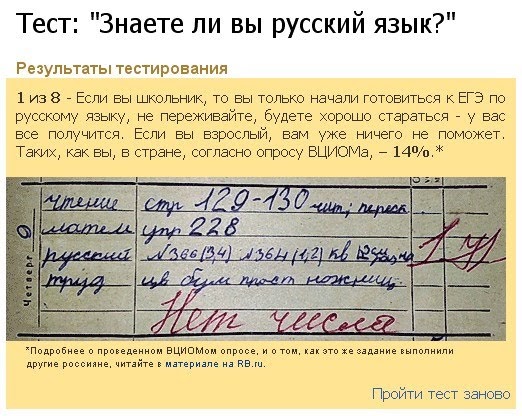 Тест: "Знаете ли вы русский язык?"
Результаты тестирования
1 из 8 - Если вы школьник, то вы только начали готовиться к ЕГЭ по
русскому языку, не переживайте, будете хорошо стараться - у вас
все получится. Если вы взрослый, вам уже ничего не поможет.
Таких, как вы, в стране, согласно опросу ВЦИОМа, – 14%.*
чтение стр 129-130 чит; переск
матем упр 228
русский N366(3,4) N364(1,2) кв
труд цв бум прост ножниц.
Четверг 9
Нет числа
*Подробнее о проведенном ВЦИОМом опросе, и о том, как это же задание выполнили
другие россияне, читайте в материале на RB.ru.
Пройти тест заново